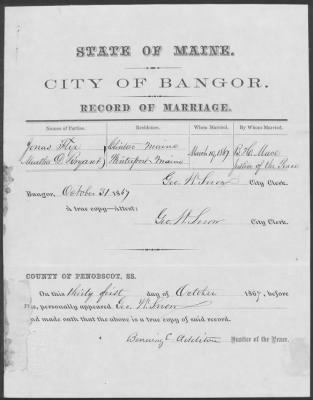 STATE OF MAINE.
CITY OF BANGOR.
RECORD OF MARRIAGE.
Names of Parties. Residence. When Married. By Whom Married.
Jonas Clinton Maine March 10, 1867 B. H.
Martha O. Bryant Winterport Maine Justice of the Peace
Geo. W. Snow City Clerk.
Bangor, October 31 1867
A true copy—Attest:
Geo. W. Snow City Clerk.
COUNTY OF PENOBSCOT, SS.
On this thirty first day of October 1867, before
me, personally appeared Geo. W. Snow
and made oath that the above is a true copy of said record.
Justice of the Peace.